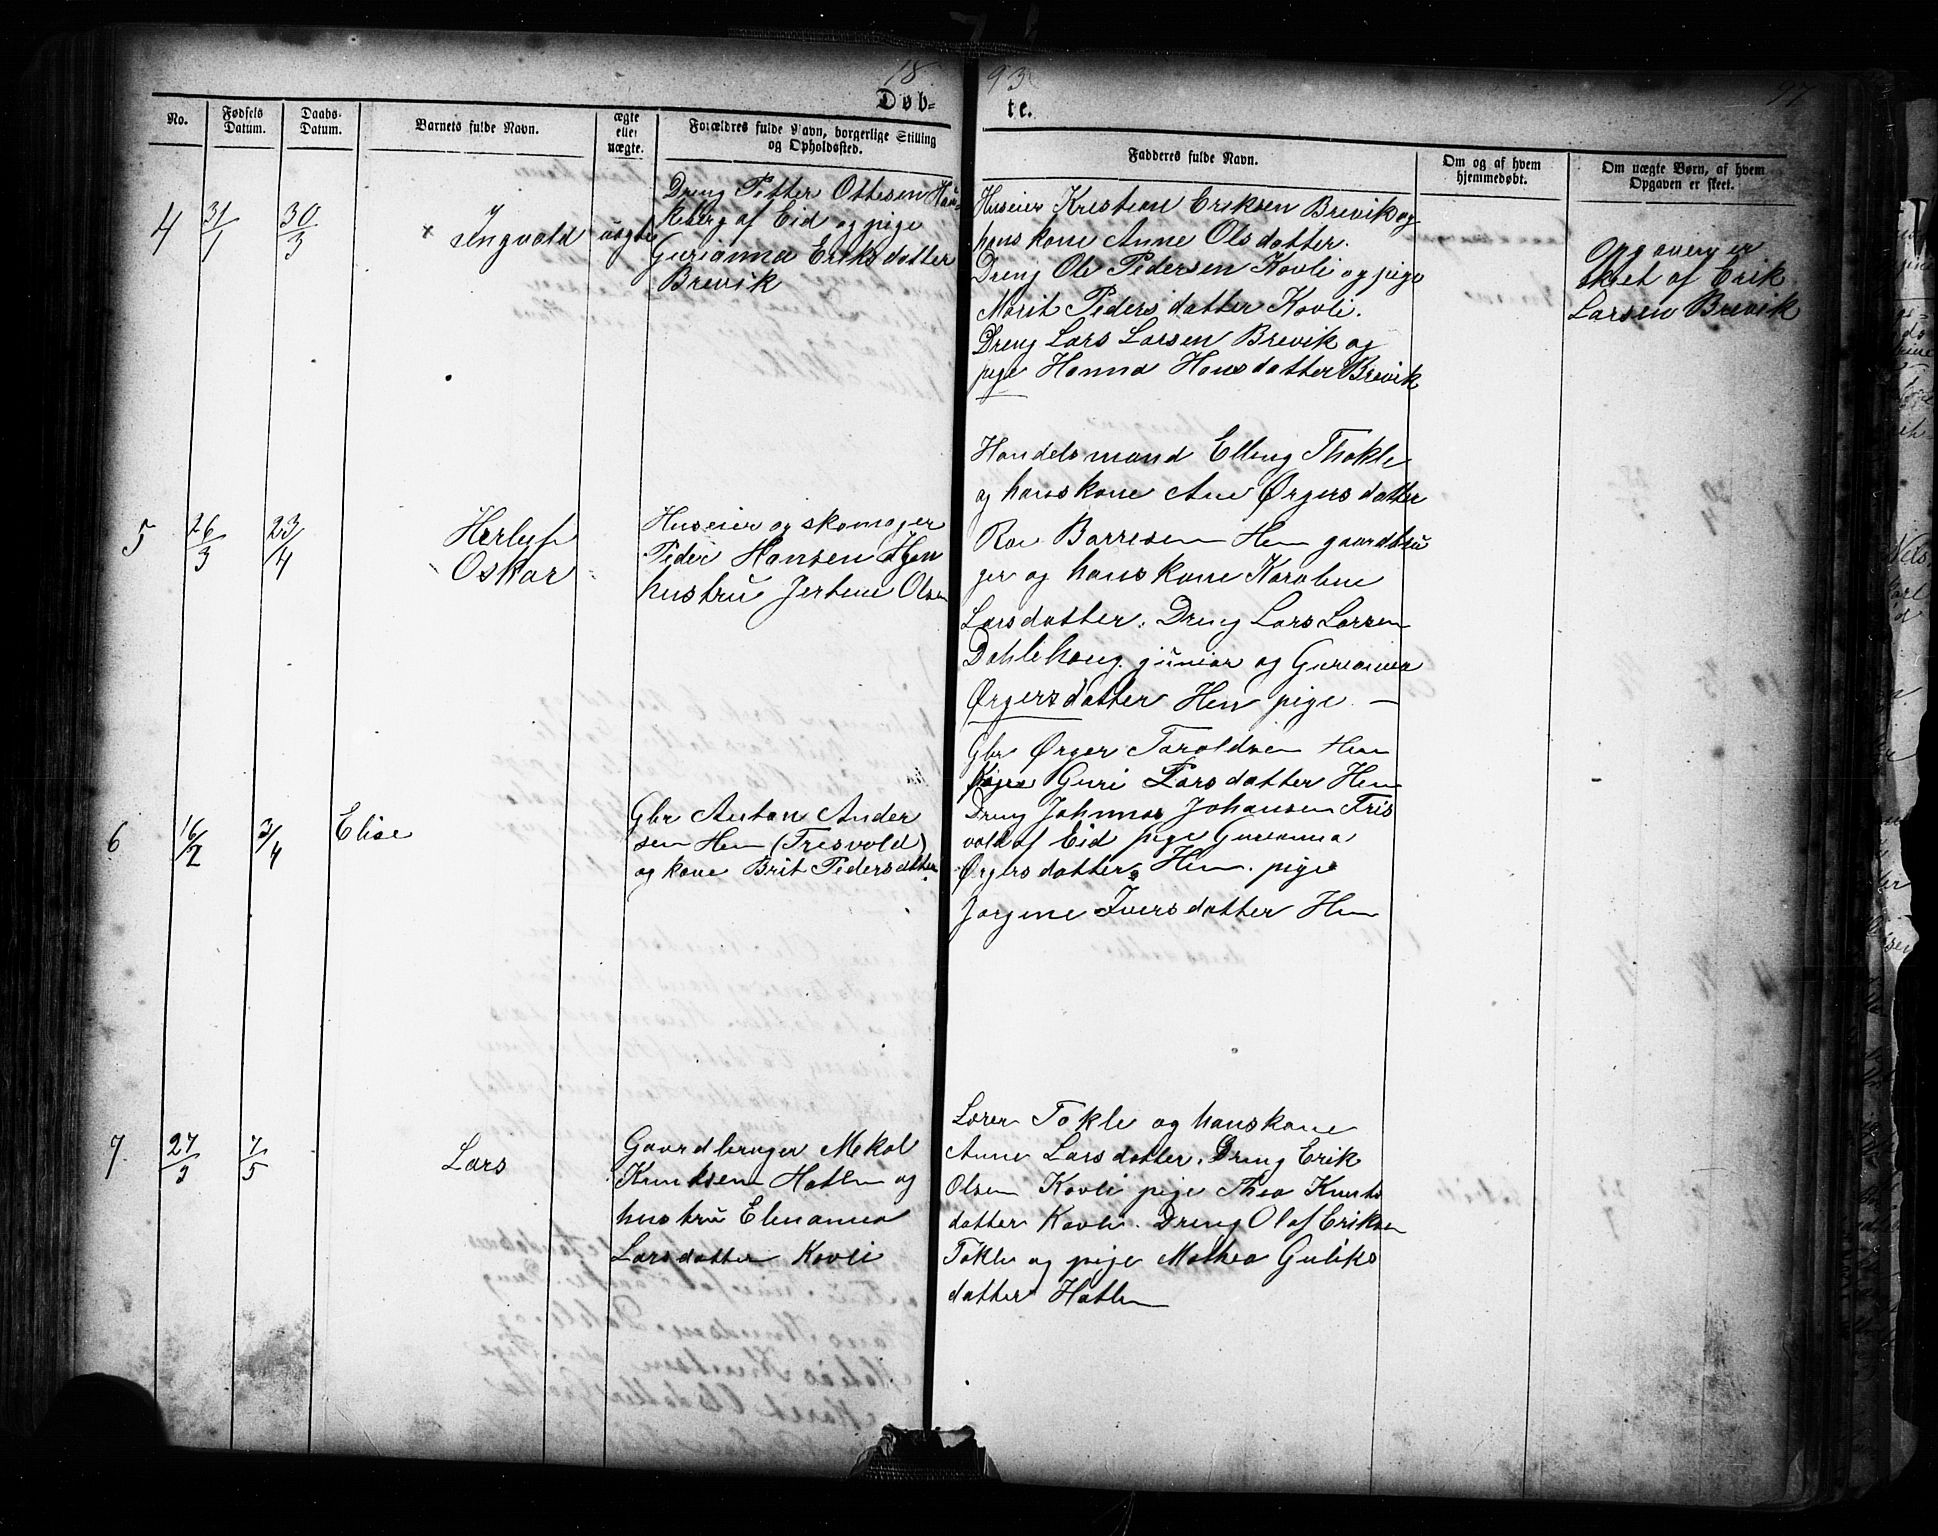 18 93
97
Døb= te.
No.
Fødsels Datum.
Daabs- Datum.
Barnets fulde Navn.
ægte eller uægte.
Forældres fulde Navn, borgerlige Stilling og Opholdssted.
Fadderes fulde Navn.
Om og af hvem hjemmedøbt.
Om uægte Børn, af hvem Opgaven er skeet.
4 31/1 30/3 × Ingvald uægte
Dreng Petter Ottesen
keberg af Eid og pige
Gurianna Eriksdatter
Brevik
Huseier Kristian Eriksen Brevik og
hans kone Anne Olsdatter.
Dreng Ole Pedersen Kovli og pige
Marit Pedersdatter Kovli.
Dreng Lars Larsen Brevik og
pige Hanna Hansdatter Brevik
Opgaven er
skeet af Erik
Larsen Brevik
5 26/3 23/4
Herluf
Oskar
Huseier og skomager
Peder Hansen Hen
hustru Jertine Olsen
Handelsmand Elling Thokle
og hans kone Ane Ørgersdatter
Roe Barresen Hen gaardbru
ger og hans kone Karoline
Larsdatter. Dreng Lars Larsen
Dahlehaug junior og Gurianna
Ørgersdatter Hen pige. —
6 16/2 3/4 Elise
Gbr Anton Ander
sen Hen (Frisvold)
og kone Brit Pedersdatter.
Gbr Ørger Taraldsen Hen
Guri Larsdatter Hen
Dreng Johannes Johansen Fris
vold af Eid pige Gurianna
Ørgersdatter Hen. pige
Jørgine Iversdatter Hen
7 27/3 7/5 Lars
Gaardbruger Mekal
Knutsen Hatlen og
hustru Elenanna
Larsdatter Kovli
Lærer Tokle og hans kone
Anne Larsdatter. Dreng Erik
Olsen Kovli pige Thea Knuts
datter Kovli. Dreng Olaf Eriksen
Tokle og pige Mathea Guliks
datter Hatlen